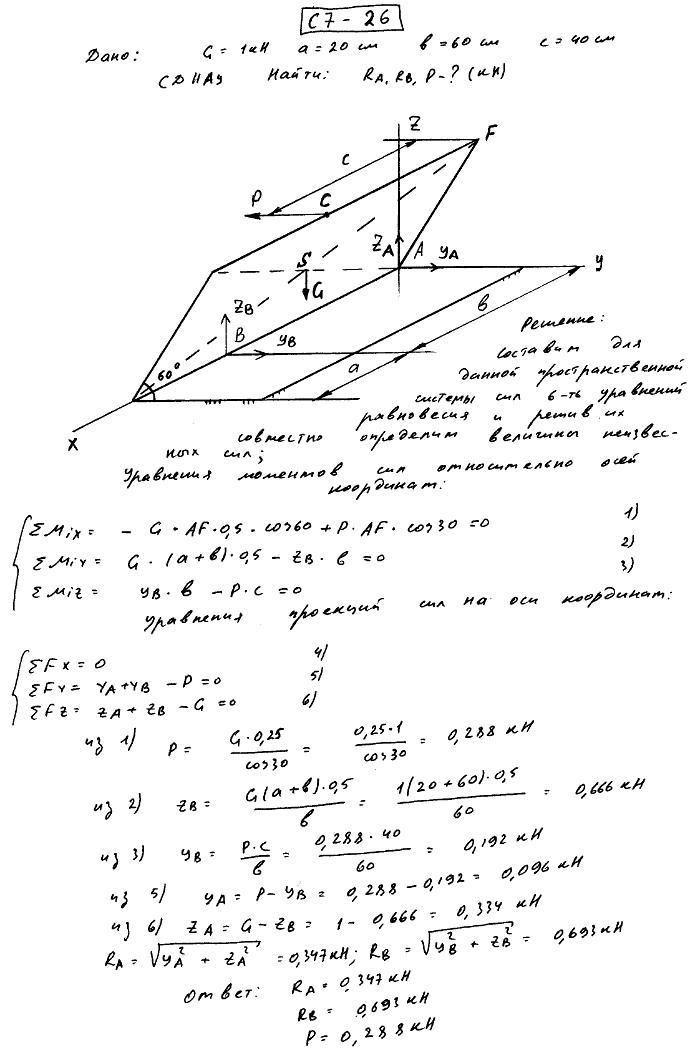 С7-26
Дано: G = 1кН a = 20 см в = 60 см c = 40 см
Найти: RA, RB, P-? (кН)
Z F
c
P C
ZA A YA y
S
G
ZB в
B YB
60° a
X
Решение:
составим для
данной пространственной
системы сил 6-ть уравнений
равновесия и решив их
совместно определим величины неизвес-
ных сил;
Уравнения моментов сил относительно осей
координат:
ΣMix = - G · AF · 0,5 · cos60 + P · AF · cos30 = 0 1)
ΣMiy = G · (a+в) · 0,5 - ZB · в = 0 2)
ΣMiz = YB · в - P · c = 0 3)
уравнения проекций сил на оси координат:
ΣFx = 0 4)
ΣFy = YA + YB - P = 0 5)
ΣFz = ZA + ZB - G = 0 6)
из 1) P = G·0,25/cos30 = 0,25·1/cos30 = 0,288 кН
из 2) ZB = G(a+в)·0,5/в = 1(20+60)·0,5/60 = 0,666 кН
из 3) YB = P·c/в = 0,288·40/60 = 0,192 кН
из 5) YA = P - YB = 0,288 - 0,192 = 0,096 кН
из 6) ZA = G - ZB = 1 - 0,666 = 0,334 кН
RA = √(YA² + ZA²) = 0,347кН; RB = √(YB² + ZB²) = 0,693 кН
Ответ: RA = 0,347 кН
RB = 0,693 кН
P = 0,288 кН